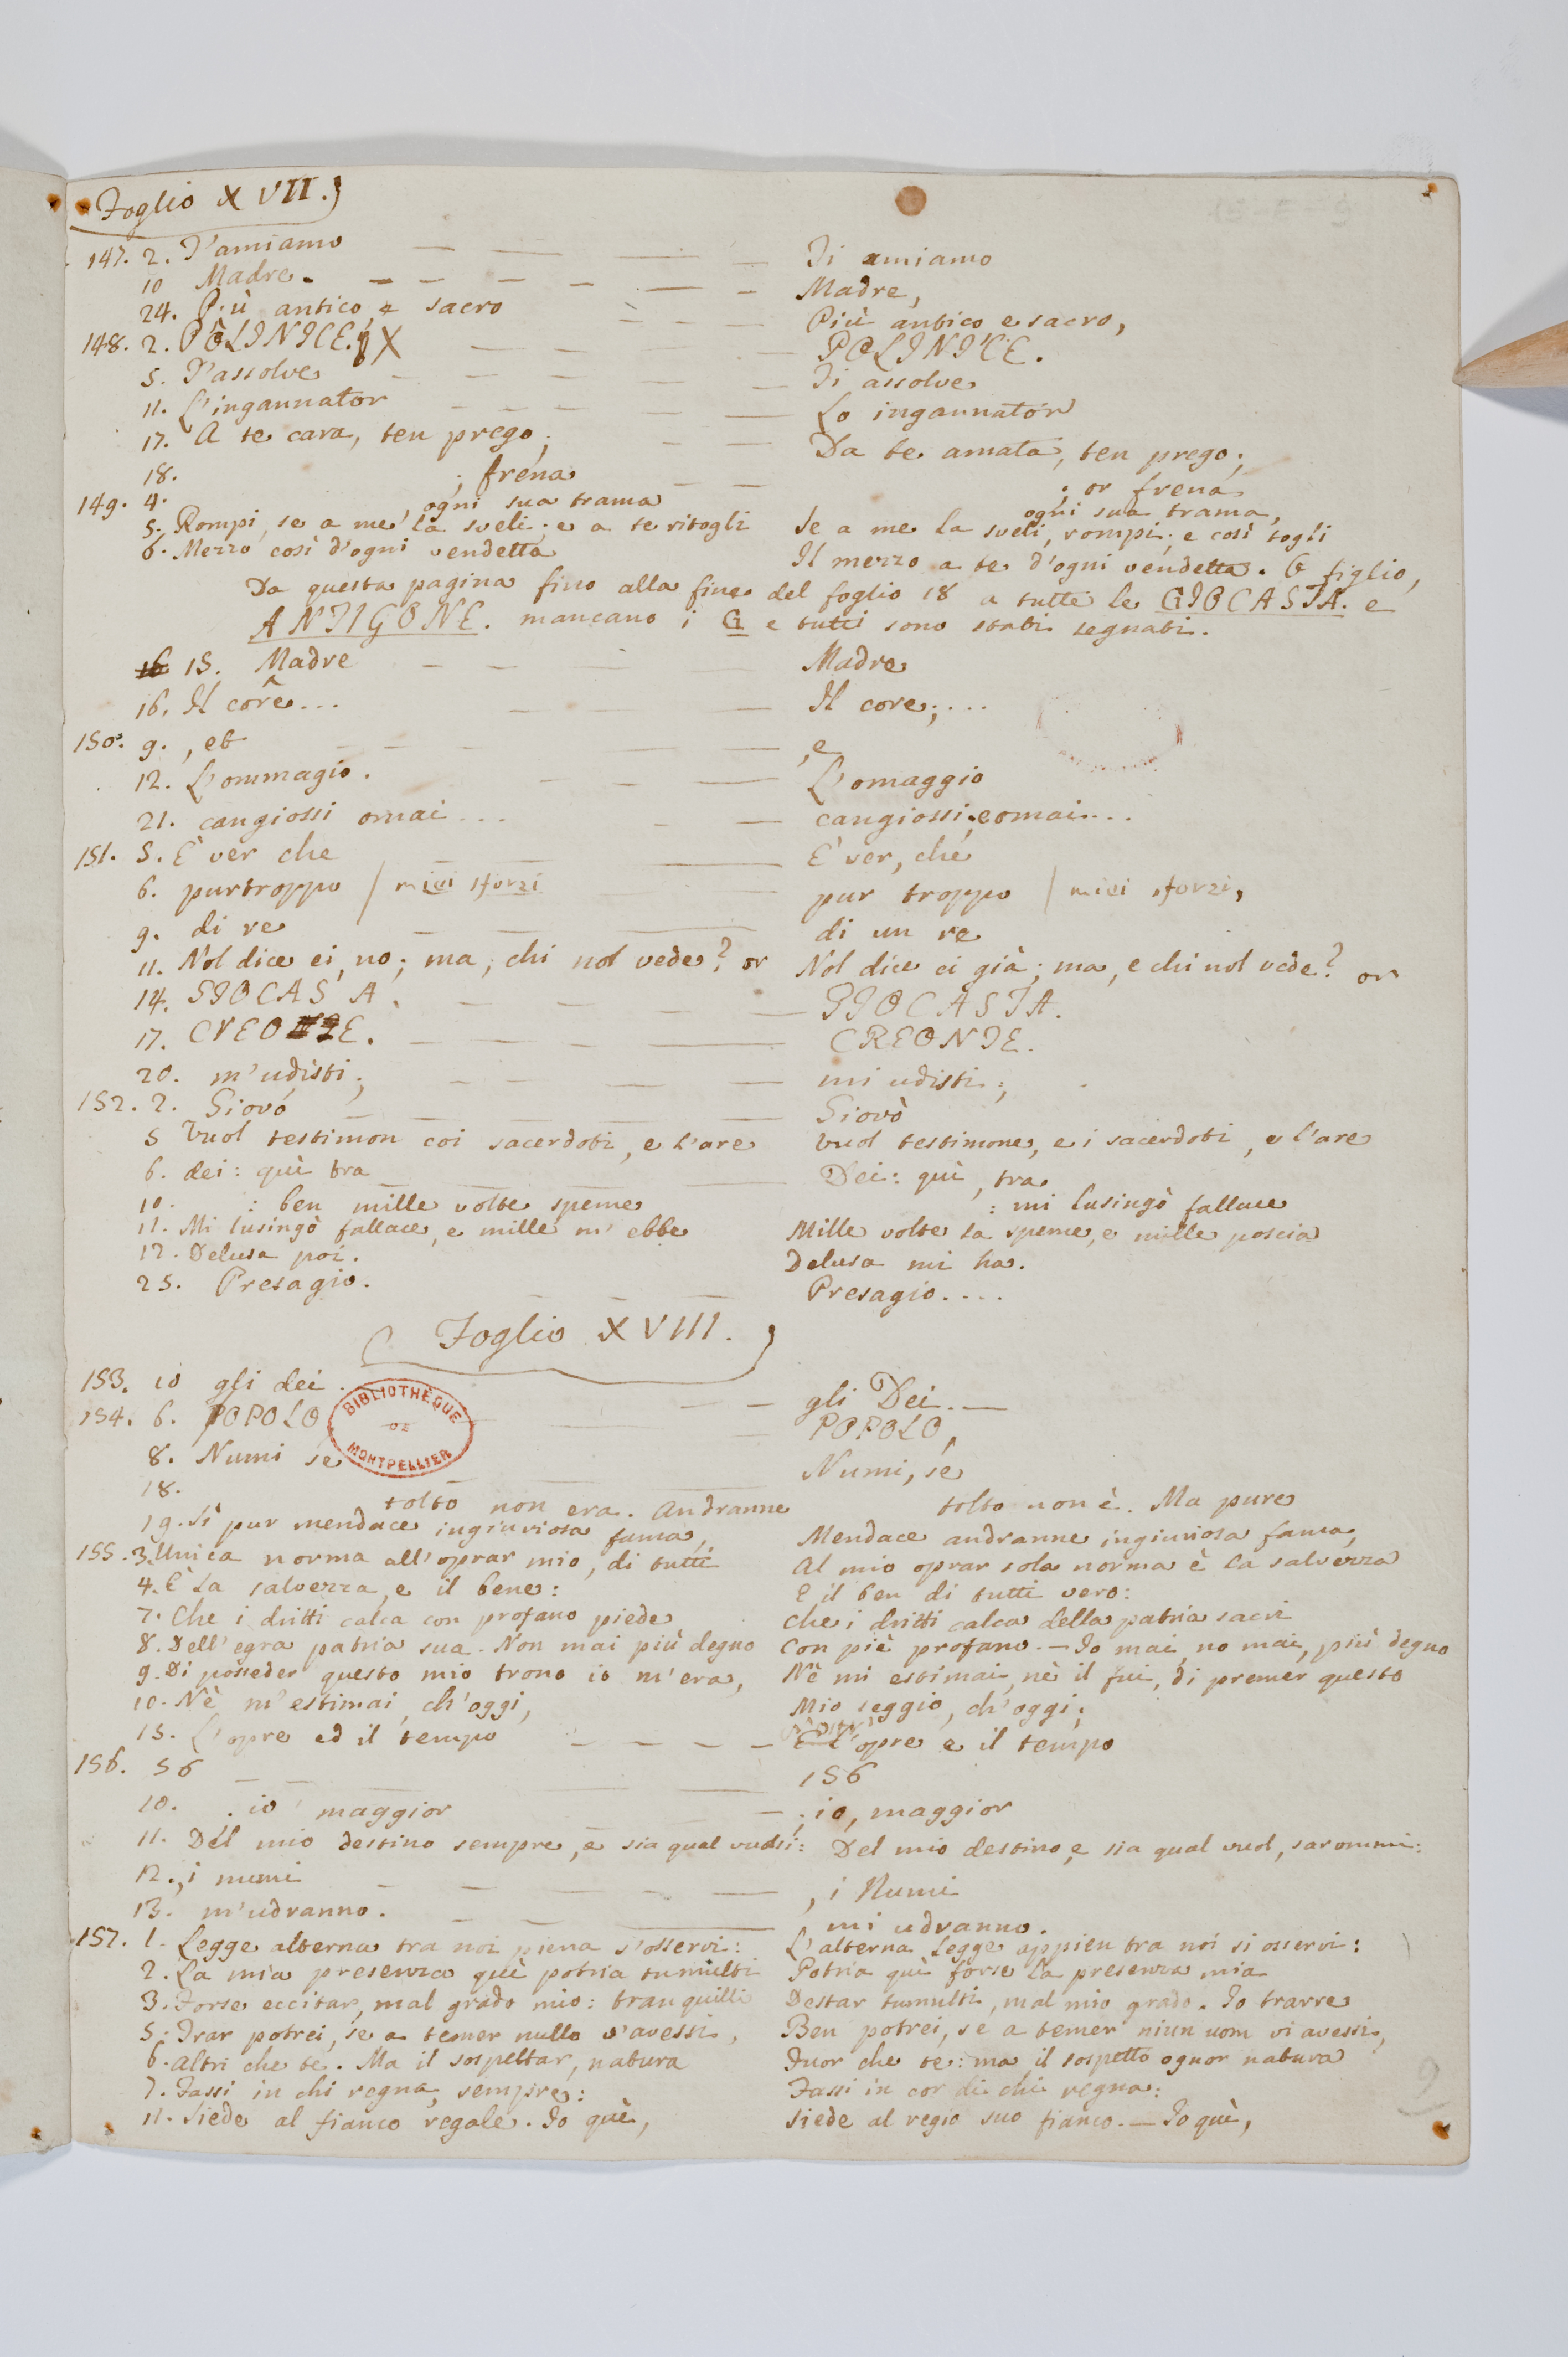 Foglio XVII.
147. 2. T'amiamo — — — — Ti amiamo
10 Madre. — — — — — — Madre,
24. Più antico, e sacro — — — Più antico e sacro,
148. 2. POLINICE. X — — — POLINICE.
5. T'assolve — — — — — Ti assolve
11. L'ingannator — — — — — Lo ingannator
17. A te cara, ten prego; — — Da te amata, ten prego;
18. ; frena — — ; or frena
149. 4. ogni sua trama ogni sua trama,
5. Rompi, se a me la sveli; e a te ritogli Se a me la sveli, rompi; e così togli
6. Mezzo così d'ogni vendetta Il mezzo a te d'ogni vendetta. O figlio,
Da questa pagina fino alla fine del foglio 18 a tutte le GIOCASTA. e
ANTIGONE. mancano i G e tutti sono stati segnati.
16 15. Madre — — — — Madre
16. Il core... — — — Il core;...
150. 9. , et — — — — , e
12. L'ommagio. — — — L'omaggio
21. cangiossi omai... — — cangiossi; e omai...
151. 5. È ver che — — — È ver, che
6. purtroppo / miei sforzi — pur troppo / miei sforzi,
9. di re — — — di un re
11. Nol dice ei, no; ma, chi nol vede? or Nol dice ei già; ma, e chi nol vede? or
14. SIOCAS A. — — — — GIOCASTA.
17. CREO E. — — — — CREONTE.
20. m'udisti; — — — — — mi udisti;
152. 2. Giovó — — — Giovò
5 Vuol testimon coi sacerdoti, e l'are Vuol testimone, e i sacerdoti, e l'are
6. dei: quì tra — — — Dei: quì, tra
10. : ben mille volte speme : mi lusingò fallace
11. Mi lusingò fallace, e mille m'ebbe Mille volte la speme, e mille poscia
12. Delusa poi. Delusa mi ha.
25. Presagio. — — — Presagio....
Foglio XVIII.
153. 10 gli dei. — — gli Dei. —
154. 6. POPOLO — — POPOLO,
BIBLIOTHÈQUE DE MONTPELLIER
8. Numi se — — Numi, se
18. tolto non era. Andranne tolto non è. Ma pure
19. Sì pur mendace ingiuriosa fama, Mendace andranne ingiuriosa fama,
155. 3. Unica norma all'oprar mio, di tutti Al mio oprar sola norma è la salvezza
4. È la salvezza, e il bene: E il ben di tutti vero:
7. Che i dritti calca con profano piede Che i dritti calca della patria sacri
8. Dell'egra patria sua. Non mai più degno Con piè profano. — Io mai, no mai, più degno
9. Di posseder questo mio trono io m'era, Nè mi estimai, nè il fui, di premer questo
10. Nè m'estimai, ch'oggi, Mio seggio, ch'oggi;
15. L'opre ed il tempo — — — — E l'opre e il tempo
156. 56 — — — — 156
10. . io maggior — — ; io, maggior
11. Del mio destino sempre, e sia qual vuolsi: Del mio destino, e sia qual vuol, sarommi:
12. , i numi — — — — — , i Numi
13. m'udranno. — — — mi udranno.
157. 1. Legge alterna tra noi piena s'osservi: L'alterna legge appien tra noi si osservi:
2. La mia presenza quì potria tumulti Potria quì forse la presenza mia
3. Forse eccitar, mal grado mio: tranquilli Destar tumulti, mal mio grado. Io trarre
5. Trar potrei, se a temer nullo v'avessi, Ben potrei, se a temer niun uom vi avessi,
6. Altri che te. Ma il sospettar, natura Fuor che te: ma il sospetto ognor natura
7. Fassi in chi regna, sempre: Fassi in cor di chi regna:
11. Siede al fianco regale. Io quì, Siede al regio suo fianco. — Io quì,
9